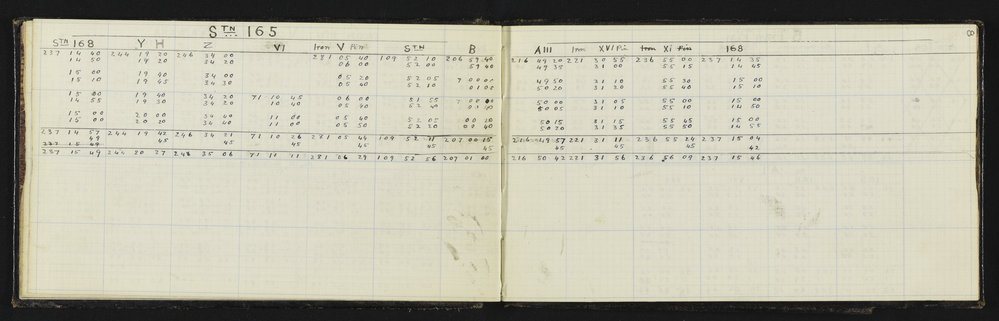 STN 165
STN 168 Y H Z VI Iron V Pin STN B A III Iron XVI Pin Iron XI Pin 168
237 14 40 244 19 20 246 34 00 281 05 40 109 52 10 206 59 40 216 49 20 221 30 55 236 55 00 237 14 35
14 50 19 20 34 20 06 00 52 00 59 40 49 35 31 00 55 15 14 45
15 00 19 40 34 00 05 20 52 05 7 00 00 49 50 31 10 55 30 15 00
15 10 19 45 34 30 05 40 52 10 01 00 50 20 31 20 55 40 15 10
15 00 19 40 34 20 71 10 45 06 00 51 55 7 00 00 50 00 31 05 55 00 15 00
14 55 19 30 34 20 10 40 05 40 52 40 50 05 31 10 55 10 14 50
15 00 20 00 34 40 11 00 05 40 52 05 00 20 50 15 31 15 55 45 15 00
15 00 20 20 34 40 11 00 05 50 52 20 50 20 31 35 55 50 14 55
237 14 57 244 19 42 246 34 21 71 10 26 281 05 44 109 52 11 207 00 15 216 49 57 221 31 11 236 55 24 237 15 04
45 45 45 45 45 45 45 45 42
237 15 49
237 15 49 244 20 27 246 35 06 71 11 11 281 06 29 109 52 56 207 01 00 216 50 42 221 31 56 236 56 09 237 15 46